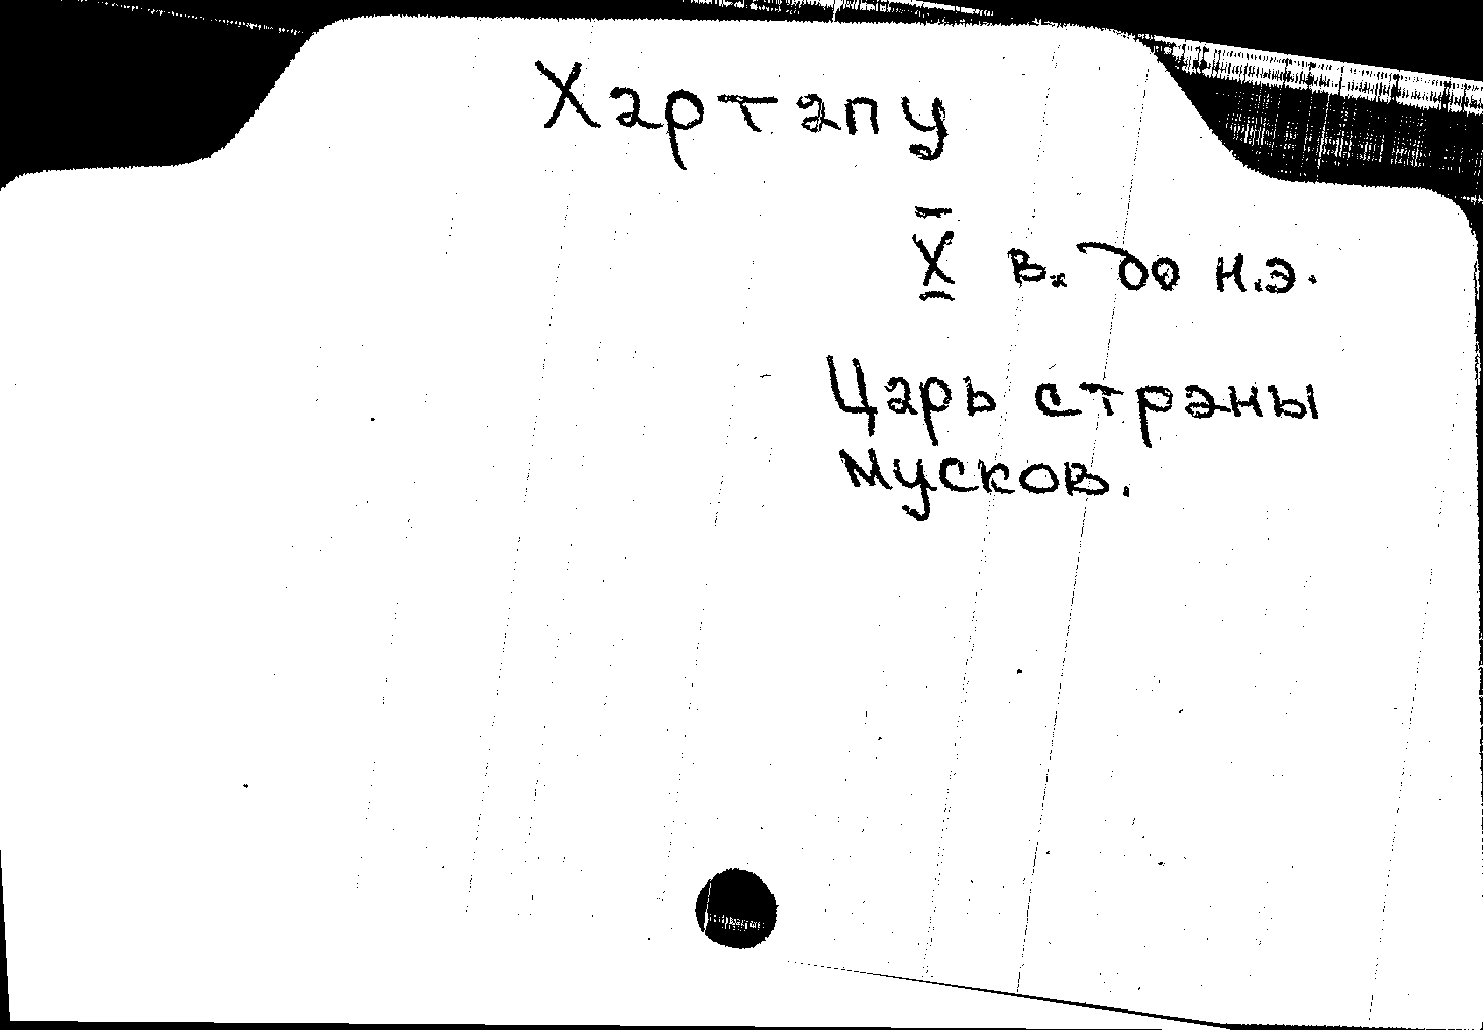 Хартапу
X в. до н.э.
Царь страны
мусков.